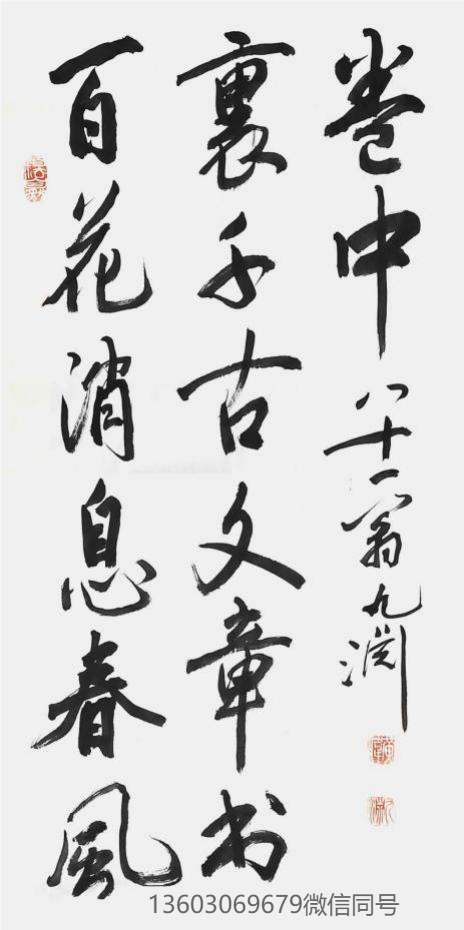 百花消息春風
裏千古文章书
卷中
八十一翁九渊
13603069679微信同号